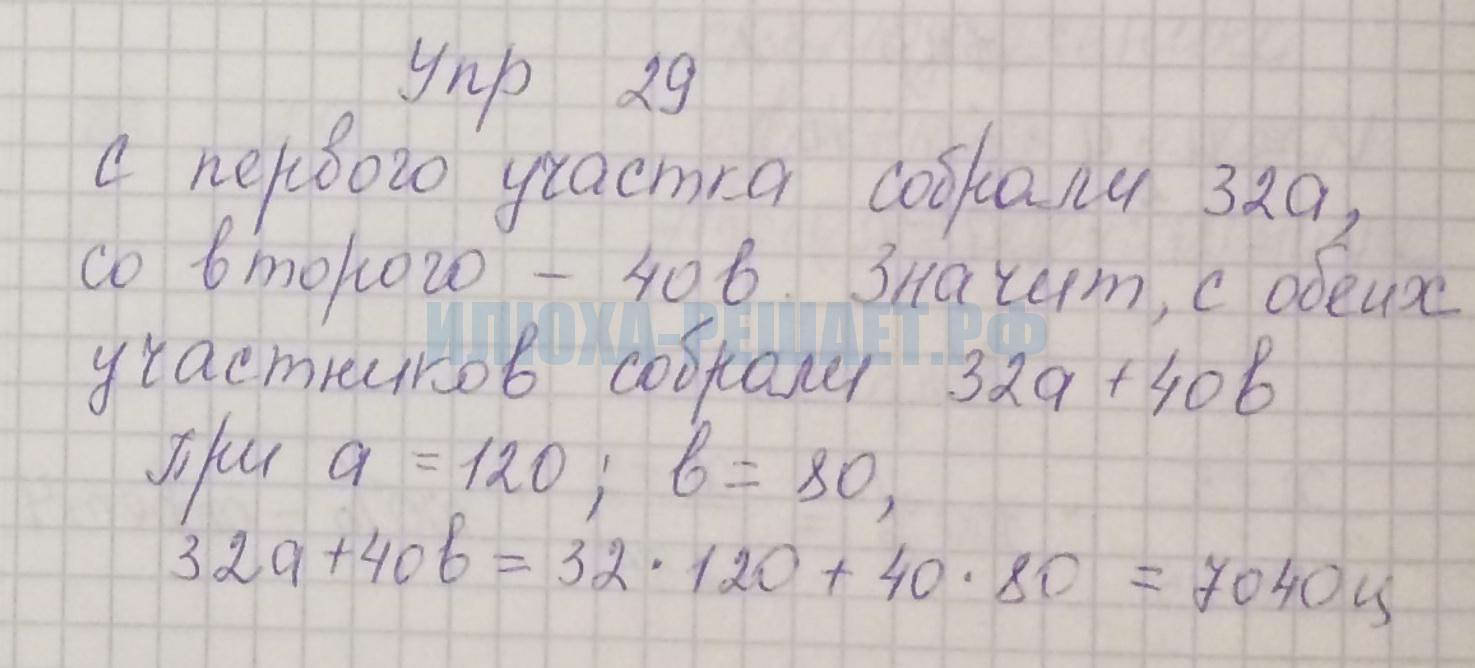 Упр 29
с первого участка собрали 32а,
со второго - 40в. Значит, с обеих
ИЛЮХА-РЕШАЕТ.РФ
участников собрали 32а+40в
при а = 120; в = 80,
32а+40в = 32·120 + 40·80 = 7040ц